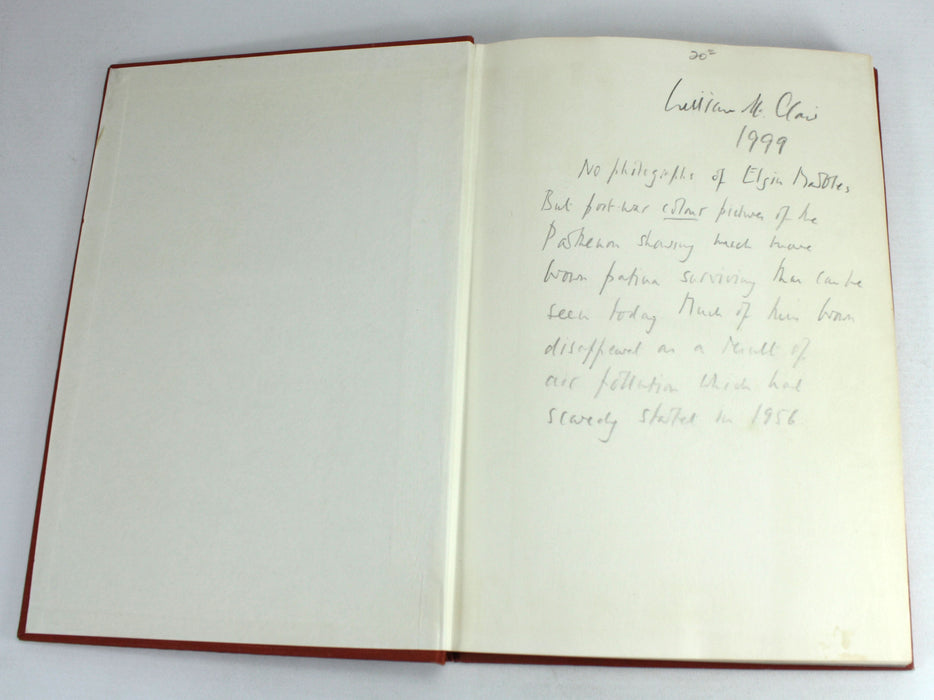 20=
William St. Clair
1999
No photographs of Elgin Marbles
But post-war colour pictures of the
Parthenon showing much more
brown patina surviving than can be
seen today Much of this brown
disappeared as a result of
air pollution which had
scarcely started in 1956